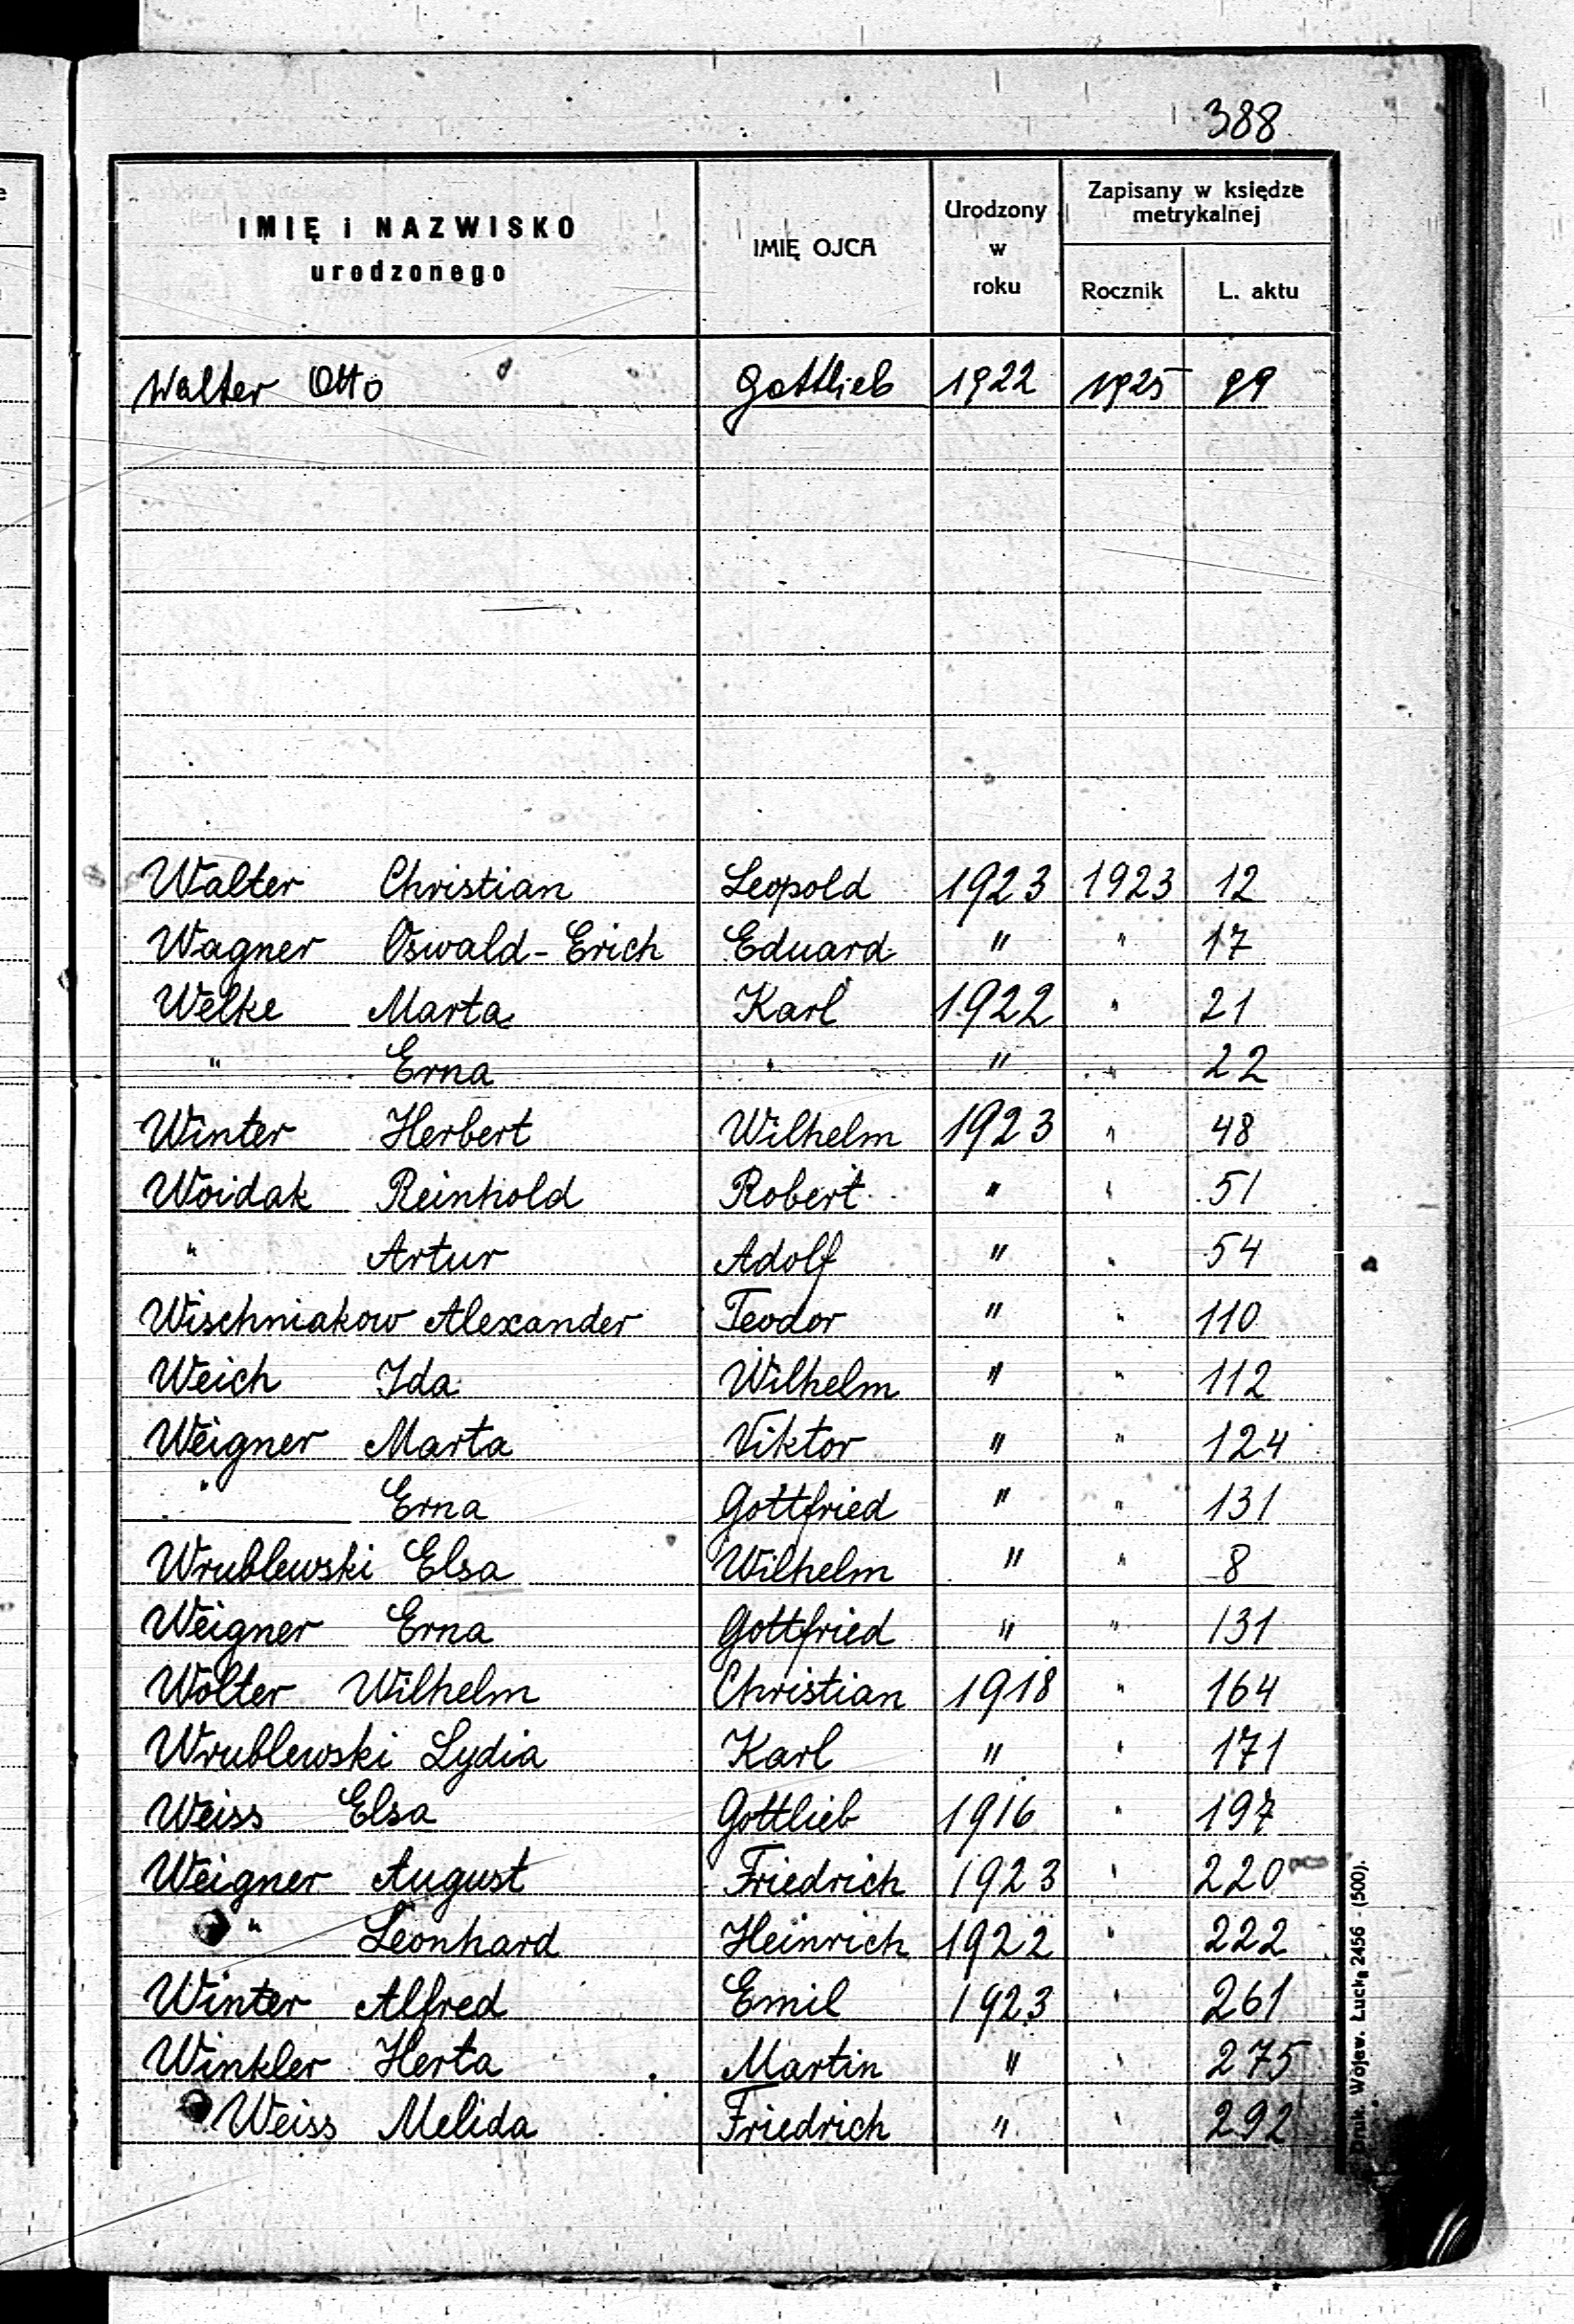 388
IMIĘ i NAZWISKO urodzonego | IMIĘ OJCA | Urodzony w roku | Zapisany w księdze metrykalnej
Rocznik | L. aktu
Walter Otto Gottlieb 1922 1925 99
Walter Christian Leopold 1923 1923 12
Wagner Oswald-Erich Eduard " " 17
Welke Marta Karl 1922 " 21
" Erna " " " 22
Winter Herbert Wilhelm 1923 " 48
Woidak Reinhold Robert " " 51
" Artur Adolf " " 54
Wischniakow Alexander Teodor " " 110
Weich Ida Wilhelm " " 112
Weigner Marta Viktor " " 124
" Erna Gottfried " " 131
Wrublewski Elsa Wilhelm " " 8
Weigner Erna Gottfried " " 131
Wolter Wilhelm Christian 1918 " 164
Wrublewski Lydia Karl " " 171
Weiss Elsa Gottlieb 1916 " 197
Weigner August Friedrich 1923 " 220
" Leonhard Heinrich 1922 " 222
Winter Alfred Emil 1923 " 261
Winkler Herta Martin " " 275
Weiss Melida Friedrich " " 292
Druk. Wojew. Łuck, 2456 - (500).